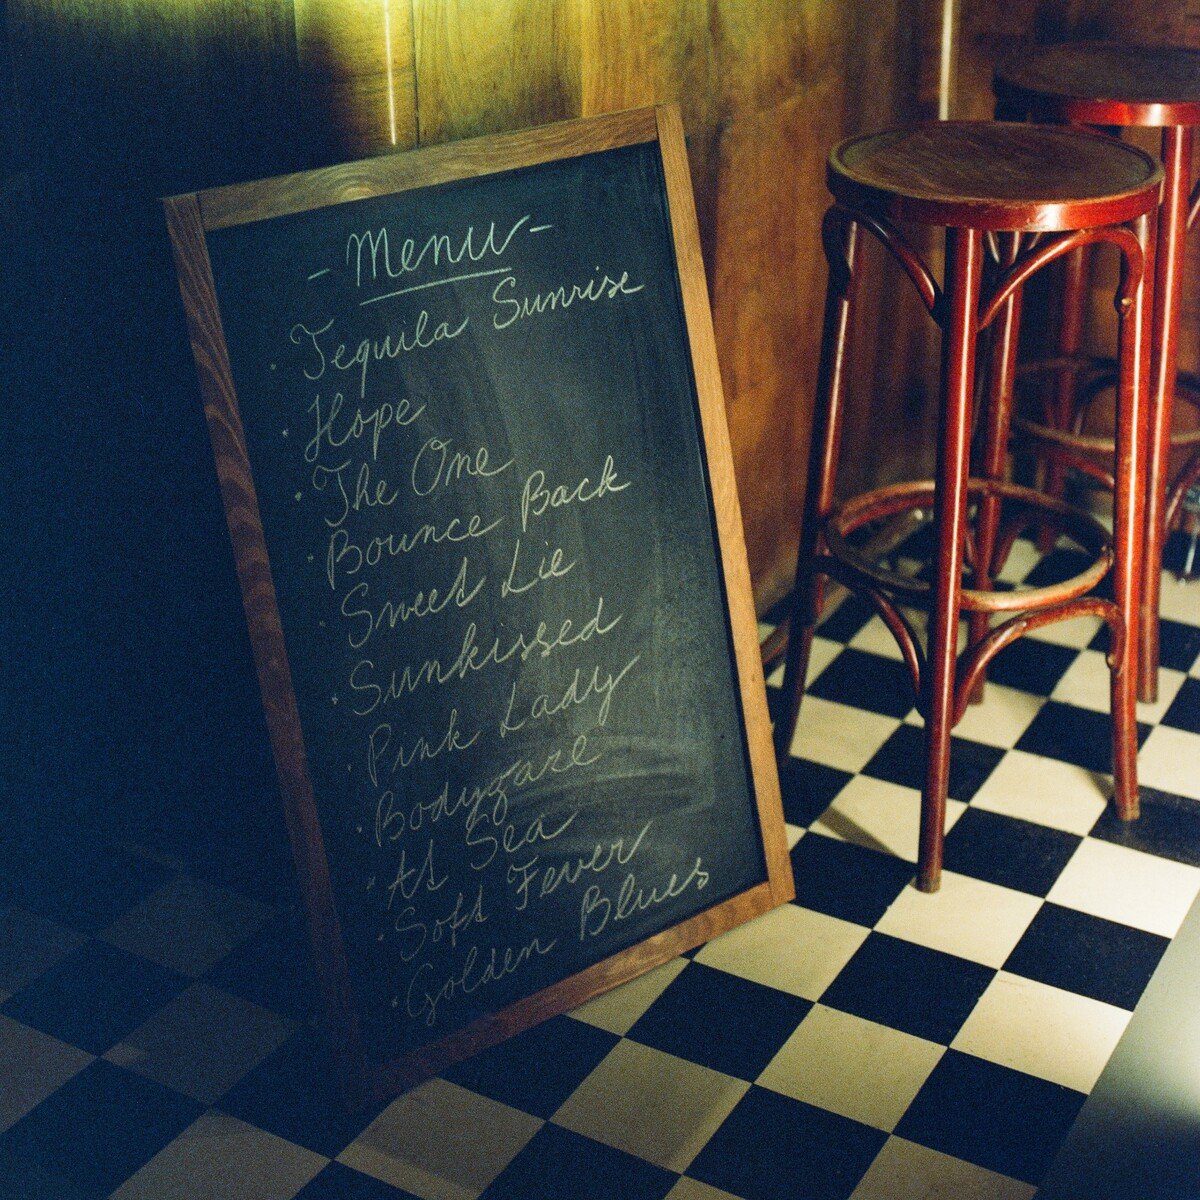 - Menu -
· Tequila Sunrise
· Hope
· The One
· Bounce Back
· Sweet Lie
· Sunkissed
· Pink Lady
· Bodygaze
· At Sea
· Soft Fever
· Golden Blues